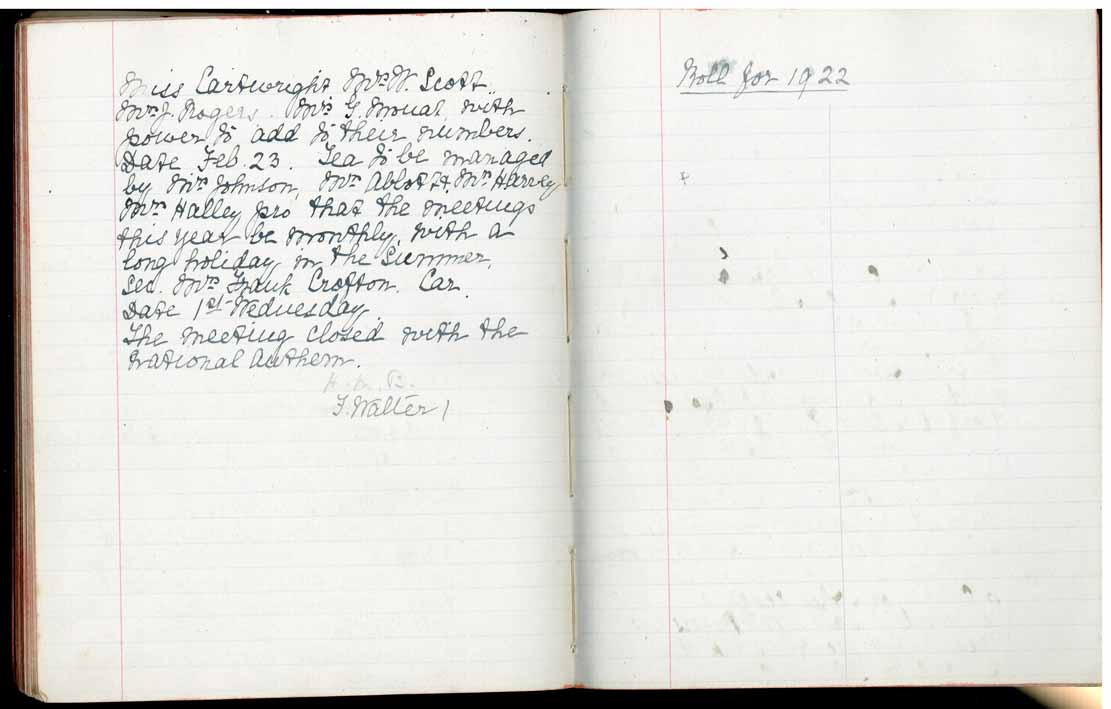 Miss Cartwright Mrs W. Scott.
Mrs J. Rogers. Mrs G. Mouat, with
power to add to their numbers.
Date Feb. 23. Tea to be managed
by Mrs Johnson, Mrs Abbott, Mrs Harvey
Mrs Halley pro that the meetings
this year be monthly, with a
long holiday in the Summer,
Sec. Mrs Frank Crofton. Car.
Date 1st Wednesday.
The meeting closed with the
National Anthem.
F. Walter
Roll for 1922